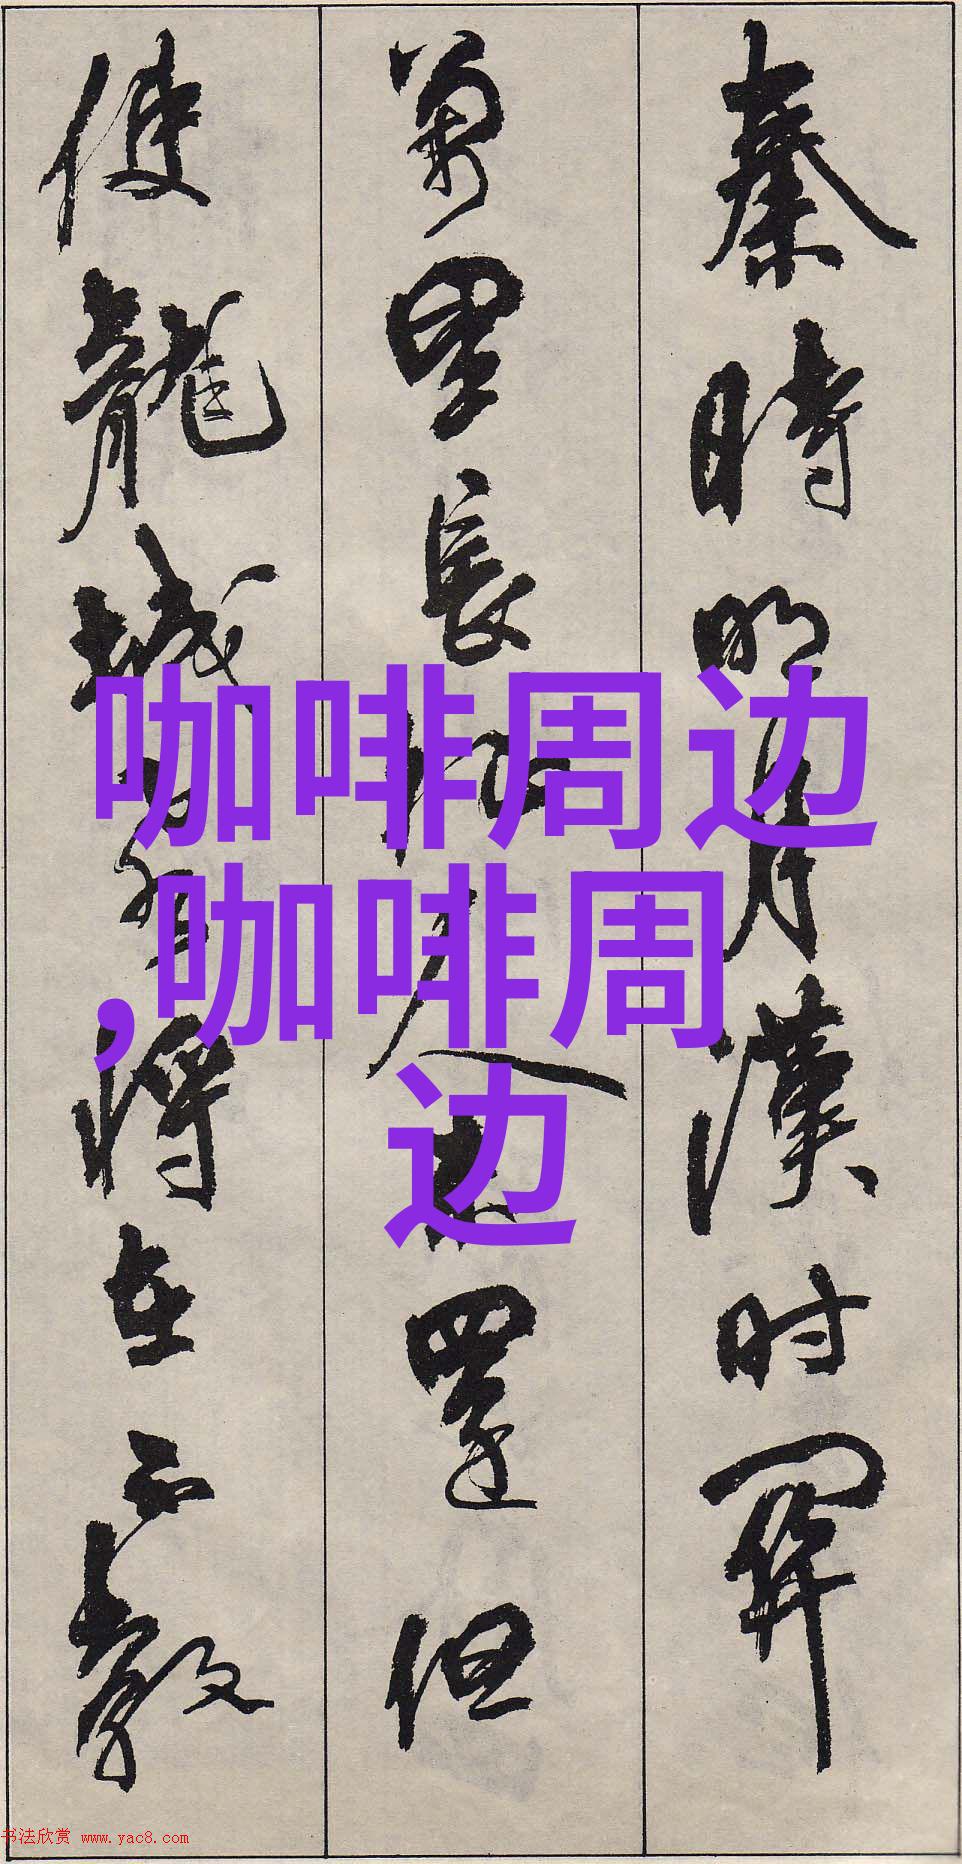 秦時明月漢时関
萬里長征人未還但
使龍城飞将在不教
咖啡周边
,咖啡周
边
书法欣赏 www.yac8.com